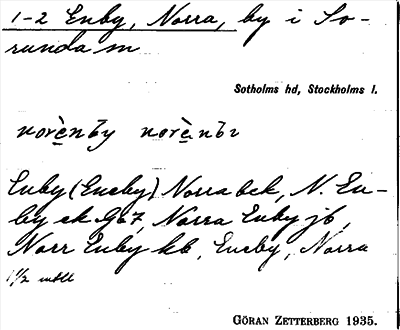 1-2 Enby, Norra, by i So-
runda sn
Sotholms hd, Stockholms l.
norènby norènbı
Enby (Eneby) Norra bek, N. En-
by ek Gb7, Norra Enby jb,
Norr Enby kb, Eneby, Norra
1 1/2 mtl
GÖRAN ZETTERBERG 1935.